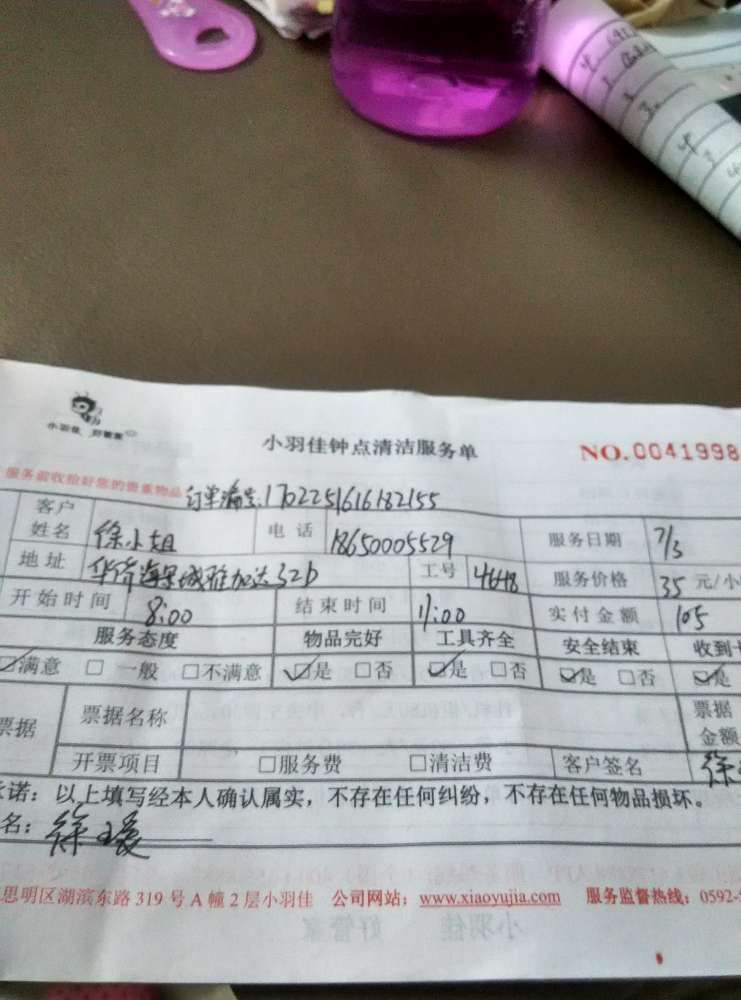 小羽佳 好管家
小羽佳钟点清洁服务单
NO.0041998
服务前收拾好您的贵重物品
订单编号:1702251616182155
客户姓名 徐小姐 电话 18650005529 服务日期 7/3
地址 32b 工号 4648 服务价格 35 元/小
开始时间 8:00 结束时间 11:00 实付金额 105
服务态度 物品完好 工具齐全 安全结束 收到
☑满意 □一般 □不满意 ☑是 □否 ☑是 □否 ☑是 □否 ☑是
票据 票据名称 票据金额
开票项目 □服务费 □清洁费 客户签名 徐
诺:以上填写经本人确认属实,不存在任何纠纷,不存在任何物品损坏。
名:徐
思明区湖滨东路 319 号 A 幢 2 层小羽佳 公司网站:www.xiaoyujia.com 服务监督热线:0592-